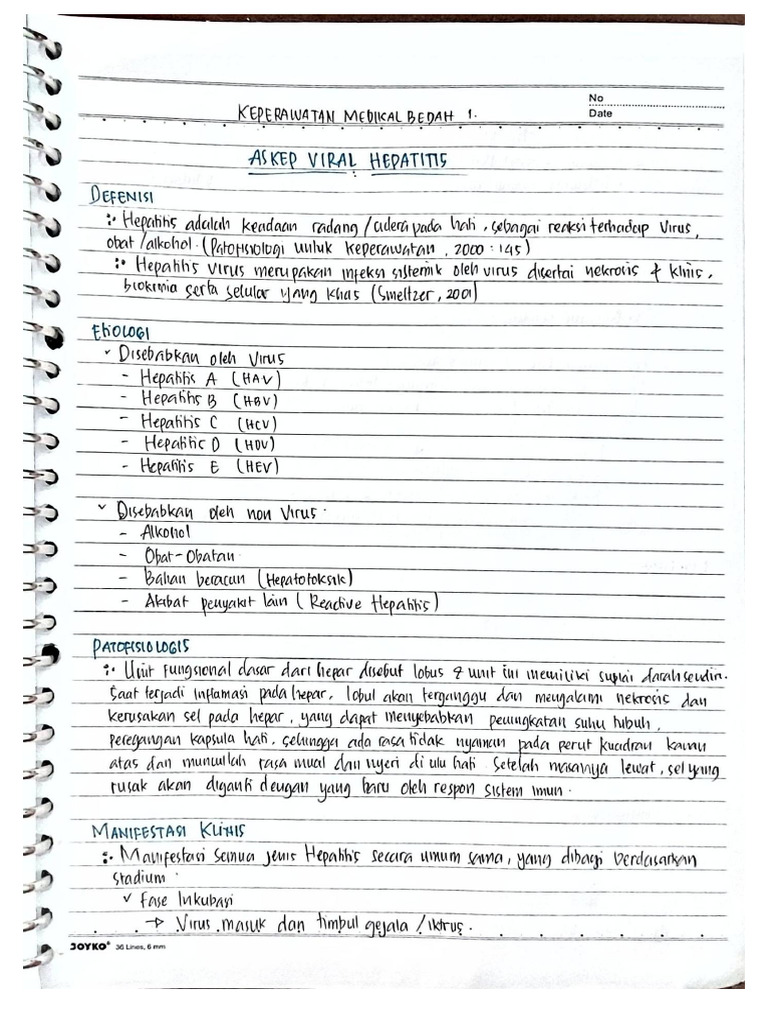 No
Date
KEPERAWATAN MEDIKAL BEDAH 1.
ASKEP VIRAL HEPATITIS
DEFENISI
Hepatitis adalah keadaan radang / cidera pada hati, sebagai reaksi terhadap Virus,
obat / alkohol. (Patofisiologi untuk keperawatan, 2000 : 145)
Hepatitis Virus merupakan infeksi sistemik oleh virus disertai nekrosis & klinis,
biokimia serta selular yang khas (Smeltzer, 2001)
EtiOLOGI
Disebabkan oleh Virus
- Hepatitis A (HAV)
- Hepatitis B (HBV)
- Hepatitis C (HCV)
- Hepatitis D (HDV)
- Hepatitis E (HEV)
Disebabkan oleh non Virus.
- Alkohol
- Obat-Obatan
- Bahan beracun (Hepatotoksik)
- Akibat penyakit lain (Reactive Hepatitis)
PATOFISIOLOGIS
Unit Fungsional dasar dari hepar disebut lobus & unit ini memiliki suplai darah sendiri.
Saat terjadi inflamasi pada hepar, lobul akan terganggu dan mengalami nekrosis dan
kerusakan sel pada hepar, yang dapat menyebabkan peningkatan suhu tubuh,
peregangan kapsula hati, sehingga ada rasa tidak nyaman pada perut kuadran kanan
atas dan muncullah rasa mual dan nyeri di ulu hati. Setelah masanya lewat, sel yang
rusak akan diganti dengan yang baru oleh respon sistem imun.
MANIFESTASI KLINIS
Manifestasi semua jenis Hepatitis secara umum sama, yang dibagi berdasarkan
stadium.
✓ Fase Inkubasi
→ Virus masuk dan timbul gejala / iktrus.
JOYKO® 36 Lines, 6 mm